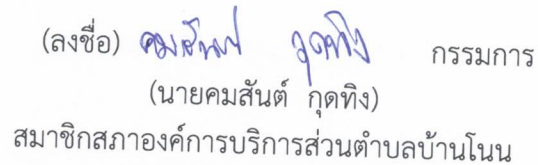 (ลงชื่อ) คมสันต์ กุดทิง กรรมการ
(นายคมสันต์ กุดทิง)
สมาชิกสภาองค์การบริการส่วนตำบลบ้านโนน